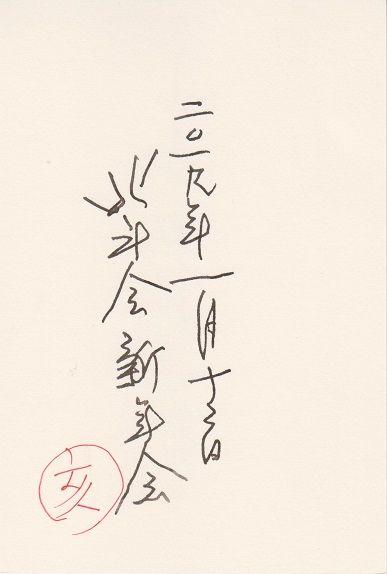 二〇一九年一月十三日
北斗会新年会
亥